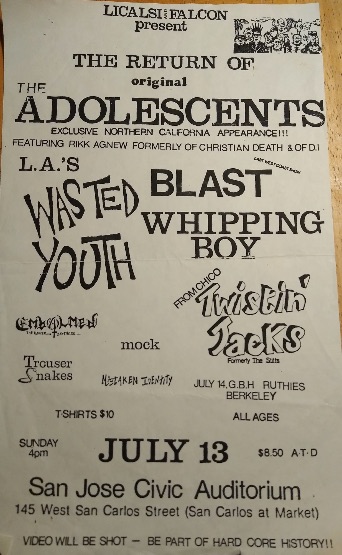 LICALSI AND FALCON
present
THE RETURN OF
original
THE
ADOLESCENTS
EXCLUSIVE NORTHERN CALIFORNIA APPEARANCE!!!
FEATURING RIKK AGNEW FORMERLY OF CHRISTIAN DEATH & OF D.I
L.A.'S
WASTED
YOUTH
BLAST
WHIPPING
BOY
FROM CHICO
Twistin'
Jacks
Formerly The Stiffs
EMBALMEN
mock
Trouser
Snakes
MISTAKEN IDENTITY
JULY 14, G.B.H RUTHIES
BERKELEY
T-SHIRTS $10
ALL AGES
SUNDAY
4pm
JULY 13
$8.50 A·T·D
San Jose Civic Auditorium
145 West San Carlos Street (San Carlos at Market)
VIDEO WILL BE SHOT – BE PART OF HARD CORE HISTORY!!